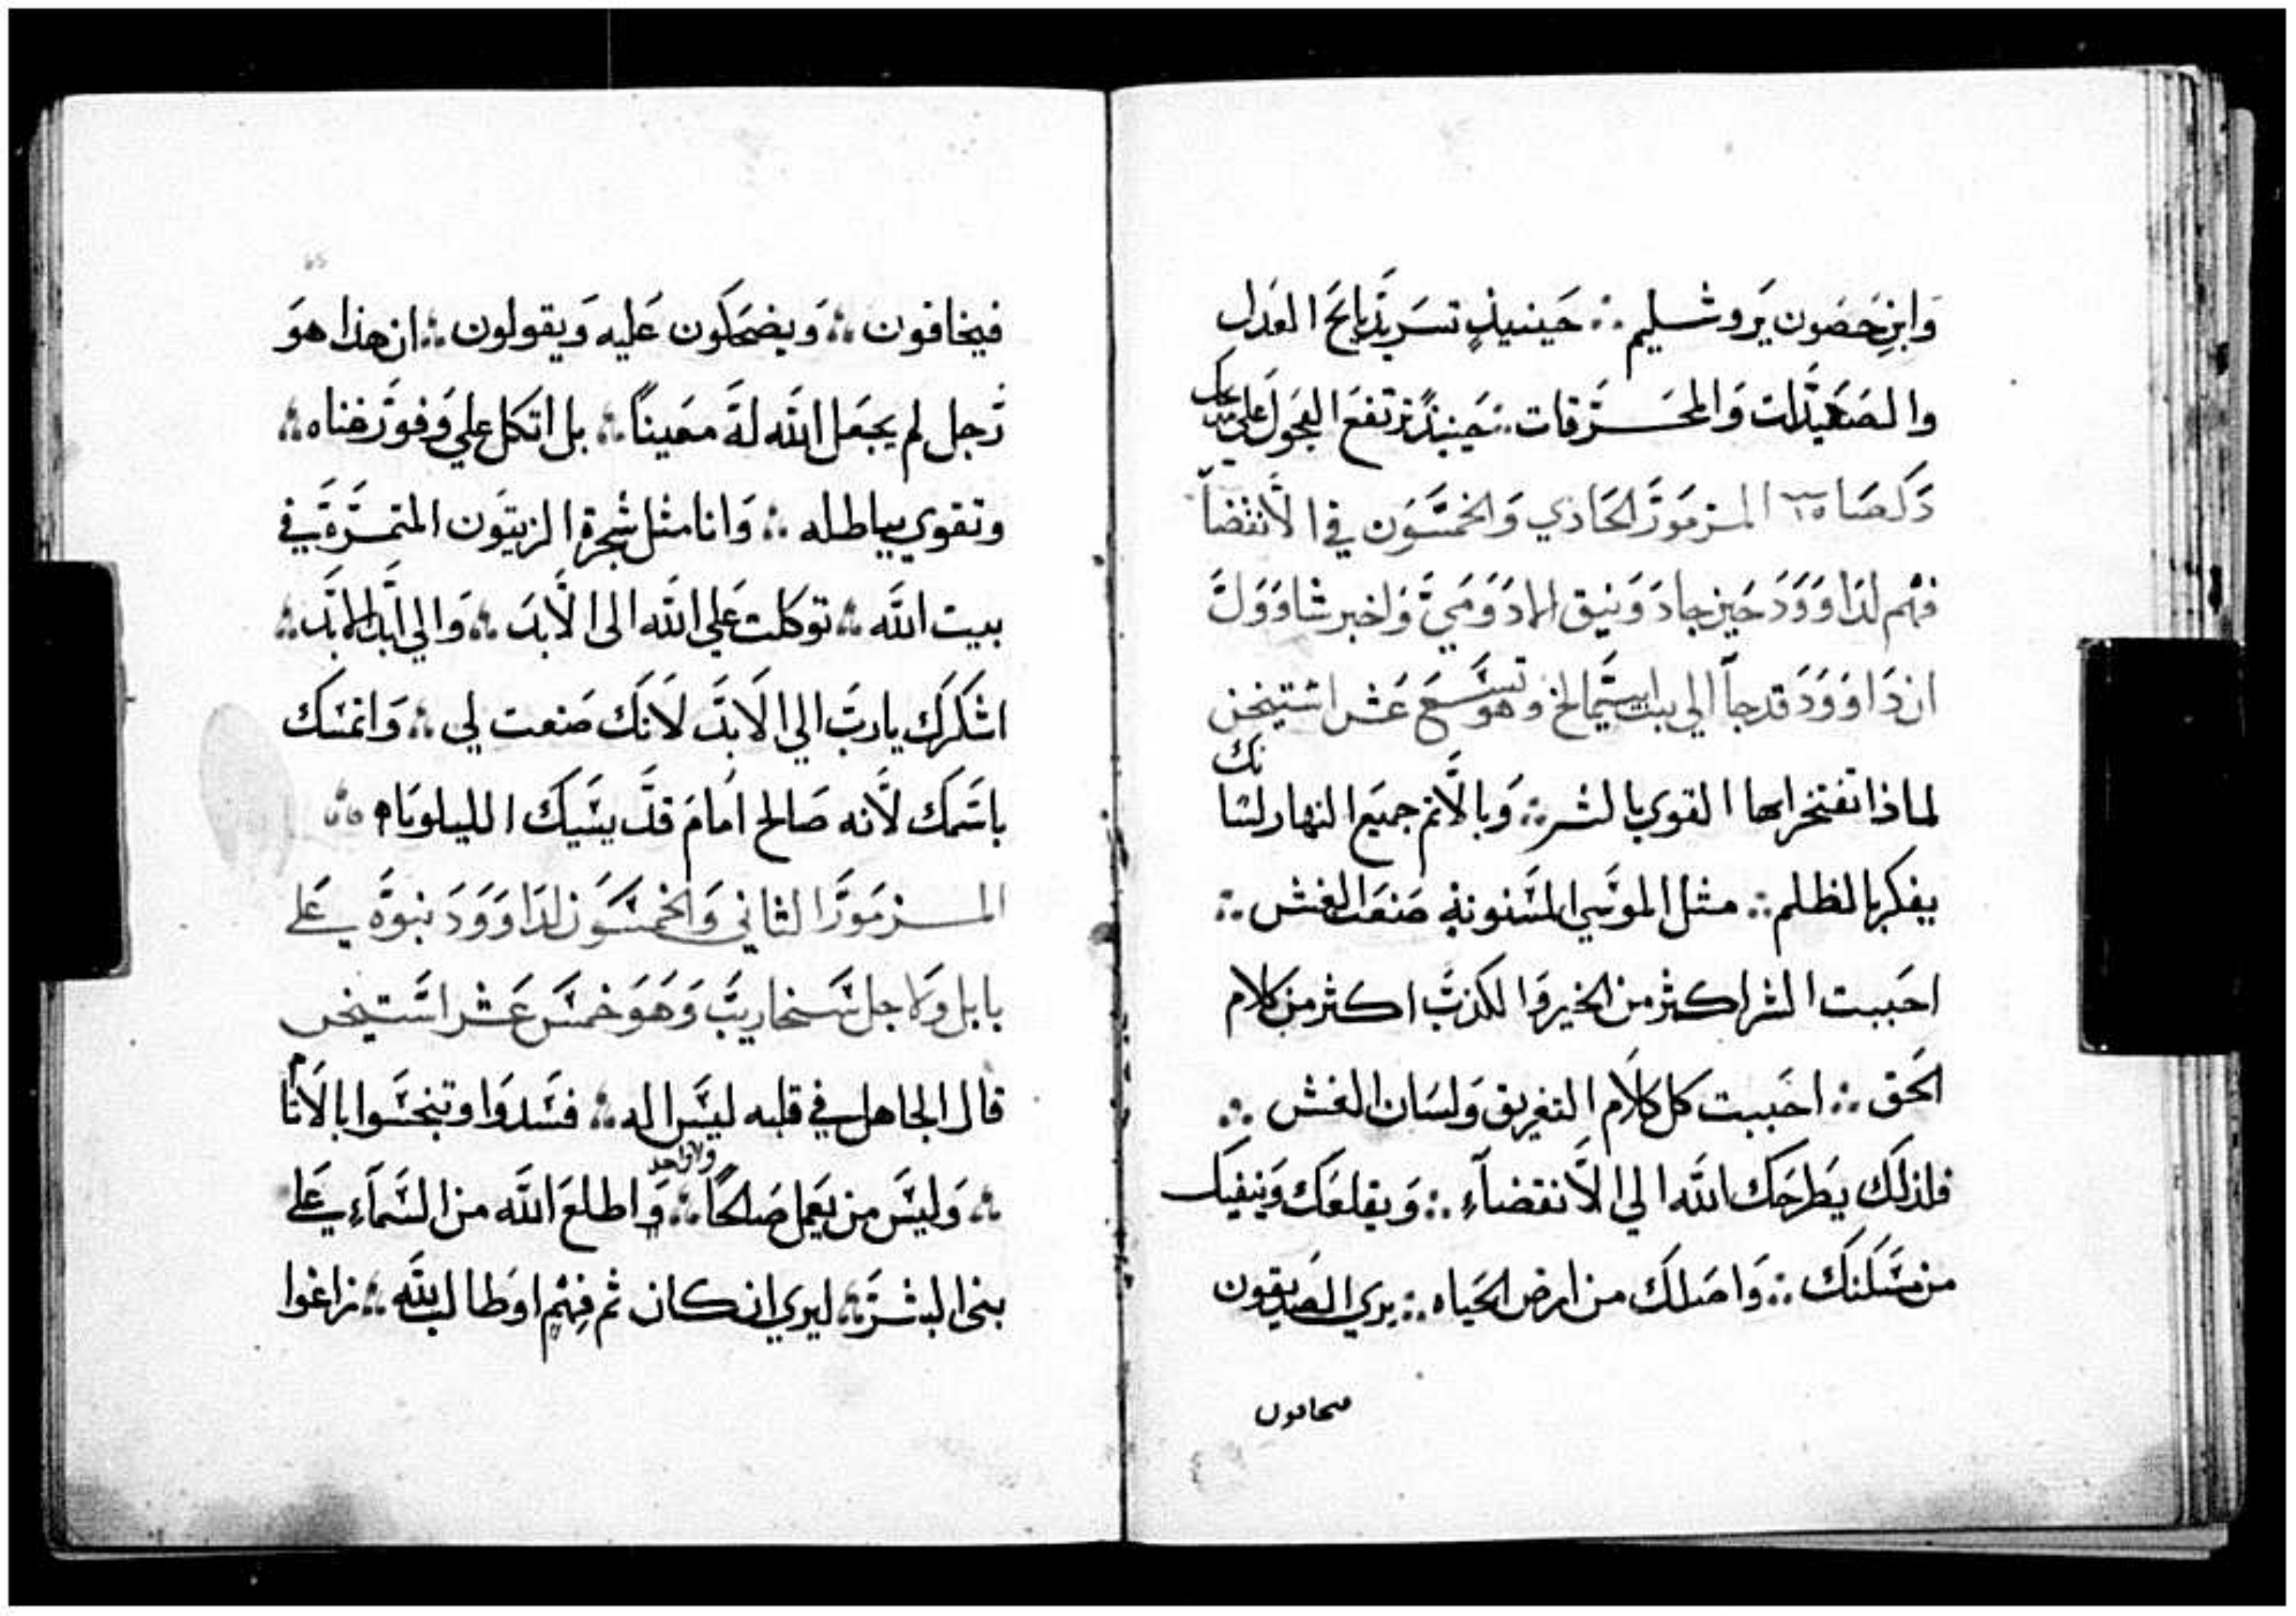 وَابنِ حَصَون يَروشليم ∴ حَينيذٍ تسَر بذَبايَح العَدل
والصَعيدَات وَالمحَرَقات ∴ حَينيذٍ ترتفعَ العجَول علي مدابحك
المزمَورَ الحَادي وَالخمسَون في الاَنقضاَ
فهم لدَاوَوَدَ حَين جا دَوَنيق الادَوَمَي وَاخبر شاوَوَل
ان دَاوَوَدَ قد جاَ الي بيت ابيتَمالخ وهو تسَعَ عَشر استيخن
لماذا تفتخر ايها القوي بالشر ∴ وَبالاَثم جميَع النهار لسَانك
يفكر بالظلم ∴ مثل الموسَي المسَنونةِ صَنعَت الغش ∴
احَببت الشر اكثر من الخير وَالكذبَ اكثر من كلام
الحَق ∴ احَببت كل كلاَم التغريق وَلسَان الغش ∴
فلذلَك يَطرحَك اللَه الي الاَنقضاَءِ ∴ وَيقلعَك وَينفيَك
من مسَكنَك ∴ وَاصَلَك من ارض الحَياه ∴ يري الصَديقون
فيخافون
فيخافون ∴ وَيضحَكون عَليه وَيقولون ∴ ان هذا هوَ
رَجل لم يجعَل اللَه لهَ معَيناً ∴ بل اتكل علي وَفورَ غناه ∴
وتقوي بباطله ∴ وَانا مثل شجرة الزيتَون المتمَرَةَ في
بيت اللَه ∴ توكلت عَلي اللَه الى الاَبدَ ∴ وَالي ابَد الابَد ∴
اشكَرَك ياربَ الي الاَبدَ لاَنَك صَنعت لي ∴ وَاتمسَك
باسَمَك لاَنه صَالح امَامَ قدَيسَيَك الليلوياه ∴
المزمَورَ الثاني وَالخمسَون لدَاوَوَدَ نبوَة عَلي
بابل وَلاجل سَنحاريبَ وَهَوَ خمسَ عَشر استَيخن
قال الجاهل في قلبه ليسَ اله ∴ فسَدوَا وتنجسَوا بالاَثام
∴ وَليسَ من يعَمل صَالحاً ولا واحد ∴ وَاطلعَ اللَه من السَمَاءِ عَلي
بني البشرَ ∴ ليري ان كان ثم فِهمٍ اوَطالب للَه ∴ زاغوا